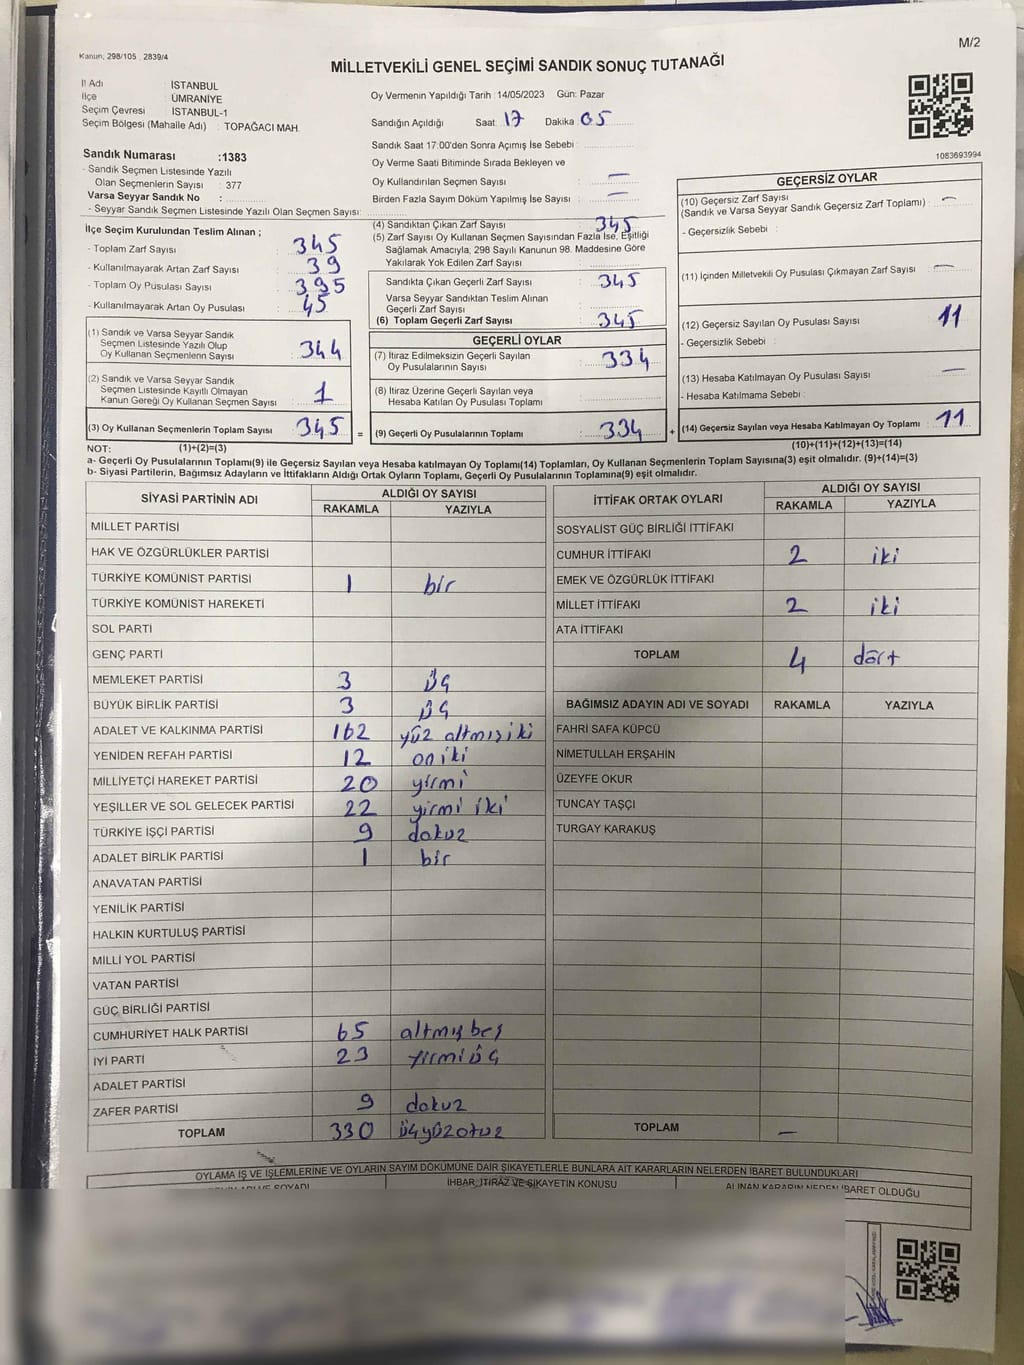 Kanun; 298/105 2839/4
M/2
MİLLETVEKİLİ GENEL SEÇİMİ SANDIK SONUÇ TUTANAĞI
İl Adı : İSTANBUL
İlçe : ÜMRANİYE
Seçim Çevresi : İSTANBUL-1
Seçim Bölgesi (Mahalle Adı) : TOPAĞACI MAH.
Sandık Numarası :1383
- Sandık Seçmen Listesinde Yazılı
Olan Seçmenlerin Sayısı : 377
Varsa Seyyar Sandık No :
- Seyyar Sandık Seçmen Listesinde Yazılı Olan Seçmen Sayısı:
Oy Vermenin Yapıldığı Tarih :14/05/2023 Gün: Pazar
Sandığın Açıldığı Saat 17 Dakika 05
Sandık Saat 17:00'den Sonra Açılmış İse Sebebi :
Oy Verme Saati Bitiminde Sırada Bekleyen ve
Oy Kullandırılan Seçmen Sayısı : —
Birden Fazla Sayım Döküm Yapılmış İse Sayısı : —
1083693994
İlçe Seçim Kurulundan Teslim Alınan ;
- Toplam Zarf Sayısı : 345
- Kullanılmayarak Artan Zarf Sayısı : 39
- Toplam Oy Pusulası Sayısı : 395
- Kullanılmayarak Artan Oy Pusulası : 45
(1) Sandık ve Varsa Seyyar Sandık
Seçmen Listesinde Yazılı Olup
Oy Kullanan Seçmenlerin Sayısı : 344
(2) Sandık ve Varsa Seyyar Sandık
Seçmen Listesinde Kayıtlı Olmayan
Kanun Gereği Oy Kullanan Seçmen Sayısı : 1
(3) Oy Kullanan Seçmenlerin Toplam Sayısı : 345 =
(4) Sandıktan Çıkan Zarf Sayısı : 345
(5) Zarf Sayısı Oy Kullanan Seçmen Sayısından Fazla İse, Eşitliği
Sağlamak Amacıyla, 298 Sayılı Kanunun 98. Maddesine Göre
Yakılarak Yok Edilen Zarf Sayısı :
Sandıkta Çıkan Geçerli Zarf Sayısı : 345
Varsa Seyyar Sandıktan Teslim Alınan
Geçerli Zarf Sayısı :
(6) Toplam Geçerli Zarf Sayısı : 345
GEÇERLİ OYLAR
(7) İtiraz Edilmeksizin Geçerli Sayılan
Oy Pusulalarının Sayısı : 334
(8) İtiraz Üzerine Geçerli Sayılan veya
Hesaba Katılan Oy Pusulası Toplamı :
(9) Geçerli Oy Pusulalarının Toplamı : 334 +
GEÇERSİZ OYLAR
(10) Geçersiz Zarf Sayısı
(Sandık ve Varsa Seyyar Sandık Geçersiz Zarf Toplamı) : —
- Geçersizlik Sebebi :
(11) İçinden Milletvekili Oy Pusulası Çıkmayan Zarf Sayısı : —
(12) Geçersiz Sayılan Oy Pusulası Sayısı : 11
- Geçersizlik Sebebi :
(13) Hesaba Katılmayan Oy Pusulası Sayısı : —
- Hesaba Katılmama Sebebi :
(14) Geçersiz Sayılan veya Hesaba Katılmayan Oy Toplamı : 11
NOT: (1)+(2)=(3)
(10)+(11)+(12)+(13)=(14)
a- Geçerli Oy Pusulalarının Toplamı(9) ile Geçersiz Sayılan veya Hesaba katılmayan Oy Toplamı(14) Toplamları, Oy Kullanan Seçmenlerin Toplam Sayısına(3) eşit olmalıdır. (9)+(14)=(3)
b- Siyasi Partilerin, Bağımsız Adayların ve İttifakların Aldığı Ortak Oyların Toplamı, Geçerli Oy Pusulalarının Toplamına(9) eşit olmalıdır.
SİYASİ PARTİNİN ADI ALDIĞI OY SAYISI
RAKAMLA YAZIYLA
MİLLET PARTİSİ
HAK VE ÖZGÜRLÜKLER PARTİSİ
TÜRKİYE KOMÜNİST PARTİSİ 1 bir
TÜRKİYE KOMÜNİST HAREKETİ
SOL PARTİ
GENÇ PARTİ
MEMLEKET PARTİSİ 3 üç
BÜYÜK BİRLİK PARTİSİ 3 üç
ADALET VE KALKINMA PARTİSİ 162 yüz altmış iki
YENİDEN REFAH PARTİSİ 12 on iki
MİLLİYETÇİ HAREKET PARTİSİ 20 yirmi
YEŞİLLER VE SOL GELECEK PARTİSİ 22 yirmi iki
TÜRKİYE İŞÇİ PARTİSİ 9 dokuz
ADALET BİRLİK PARTİSİ 1 bir
ANAVATAN PARTİSİ
YENİLİK PARTİSİ
HALKIN KURTULUŞ PARTİSİ
MİLLİ YOL PARTİSİ
VATAN PARTİSİ
GÜÇ BİRLİĞİ PARTİSİ
CUMHURİYET HALK PARTİSİ 65 altmış beş
İYİ PARTİ 23 yirmi üç
ADALET PARTİSİ
ZAFER PARTİSİ 9 dokuz
TOPLAM 330 üçyüzotuz
İTTİFAK ORTAK OYLARI ALDIĞI OY SAYISI
RAKAMLA YAZIYLA
SOSYALİST GÜÇ BİRLİĞİ İTTİFAKI
CUMHUR İTTİFAKI 2 iki
EMEK VE ÖZGÜRLÜK İTTİFAKI
MİLLET İTTİFAKI 2 iki
ATA İTTİFAKI
TOPLAM 4 dört
BAĞIMSIZ ADAYIN ADI VE SOYADI RAKAMLA YAZIYLA
FAHRİ SAFA KÜPCÜ
NİMETULLAH ERŞAHİN
ÜZEYFE OKUR
TUNCAY TAŞÇI
TURGAY KARAKUŞ
TOPLAM —
OYLAMA İŞ VE İŞLEMLERİNE VE OYLARIN SAYIM DÖKÜMÜNE DAİR ŞİKAYETLERLE BUNLARA AİT KARARLARIN NELERDEN İBARET BULUNDUKLARI
SOYADI İHBAR, İTİRAZ VE ŞİKAYETİN KONUSU ALINAN KARARIN NEDEN İBARET OLDUĞU